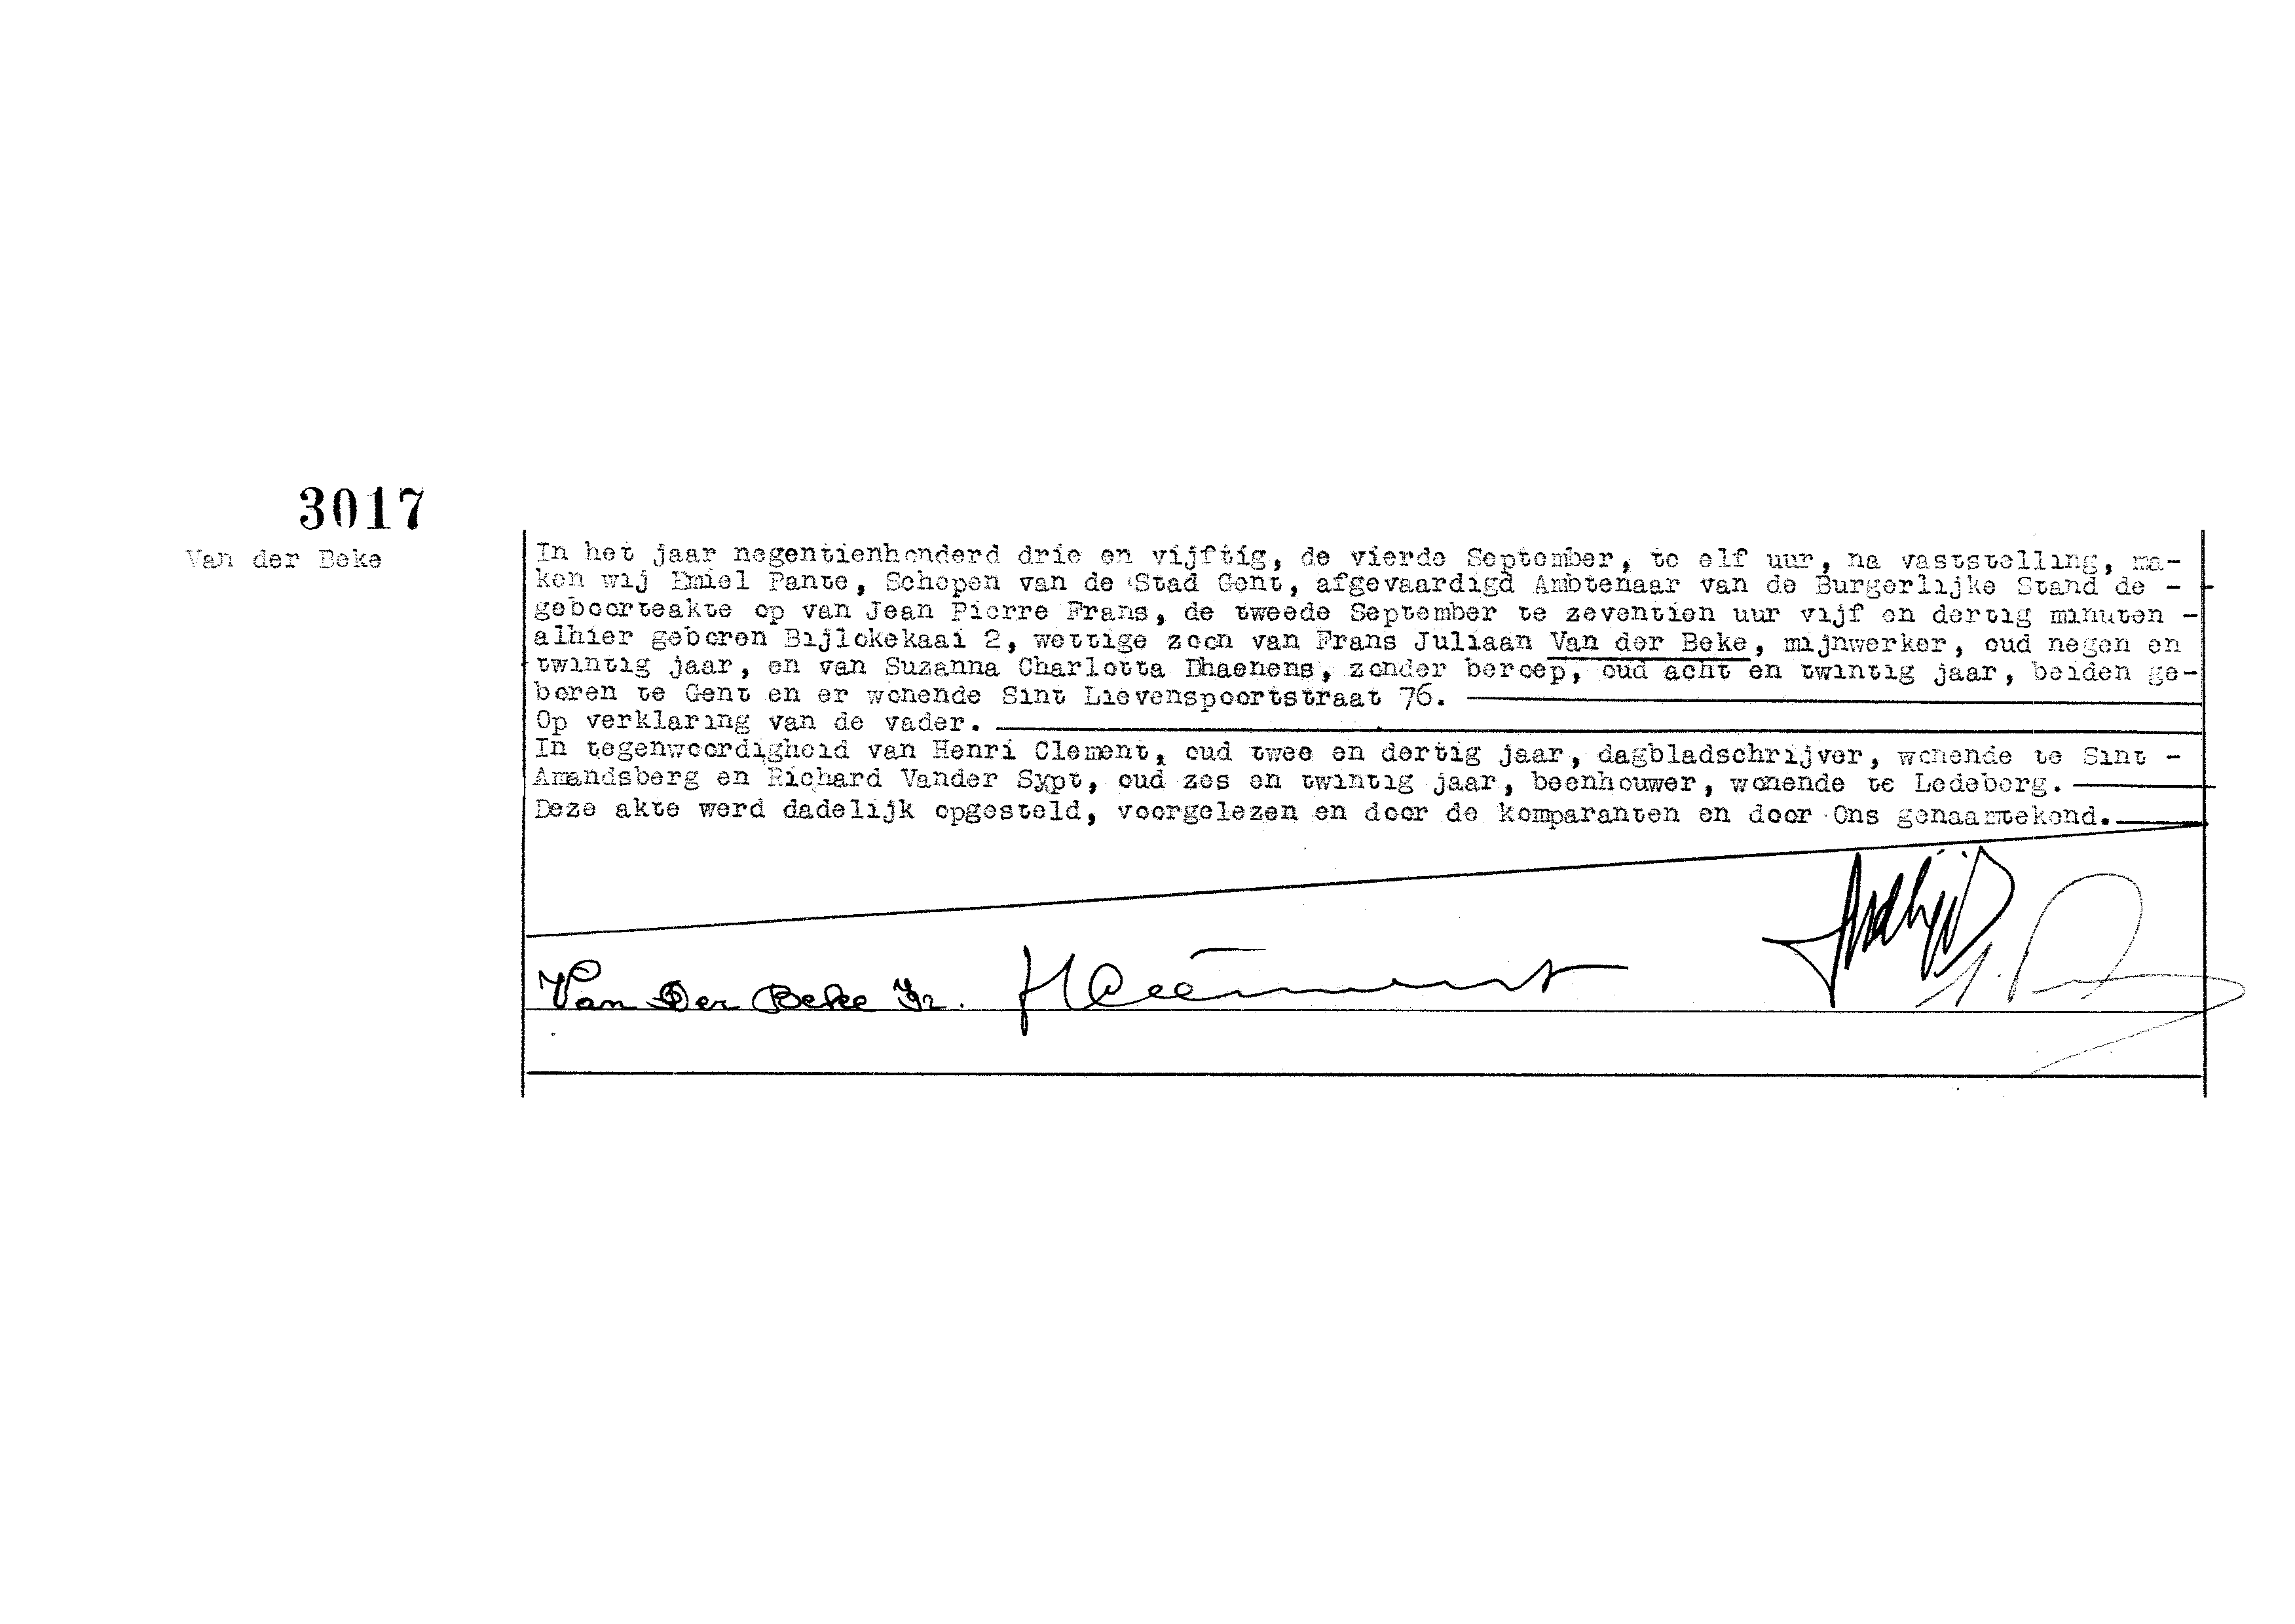 3017
Van der Beke
In het jaar negentienhonderd drie en vijftig, de vierde September, te elf uur, na vaststelling, ma-
ken wij Emiel Pante, Schepen van de Stad Gent, afgevaardigd Ambtenaar van de Burgerlijke Stand de -
geboorteakte op van Jean Pierre Frans, de tweede September te zeventien uur vijf en dertig minuten -
alhier geboren Bijlokekaai 2, wettige zoon van Frans Juliaan Van der Beke, mijnwerker, oud negen en
twintig jaar, en van Suzanna Charlotta Dhaenens, zonder beroep, oud acht en twintig jaar, beiden ge-
boren te Gent en er wonende Sint Lievenspoortstraat 76.
Op verklaring van de vader.
In tegenwoordigheid van Henri Clement, oud twee en dertig jaar, dagbladschrijver, wonende te Sint -
Amandsberg en Richard Vander Sypt, oud zes en twintig jaar, beenhouwer, wonende te Ledeberg.
Deze akte werd dadelijk opgesteld, voorgelezen en door de komparanten en door Ons genaamtekend.
Van Der Beke Fr. HClément